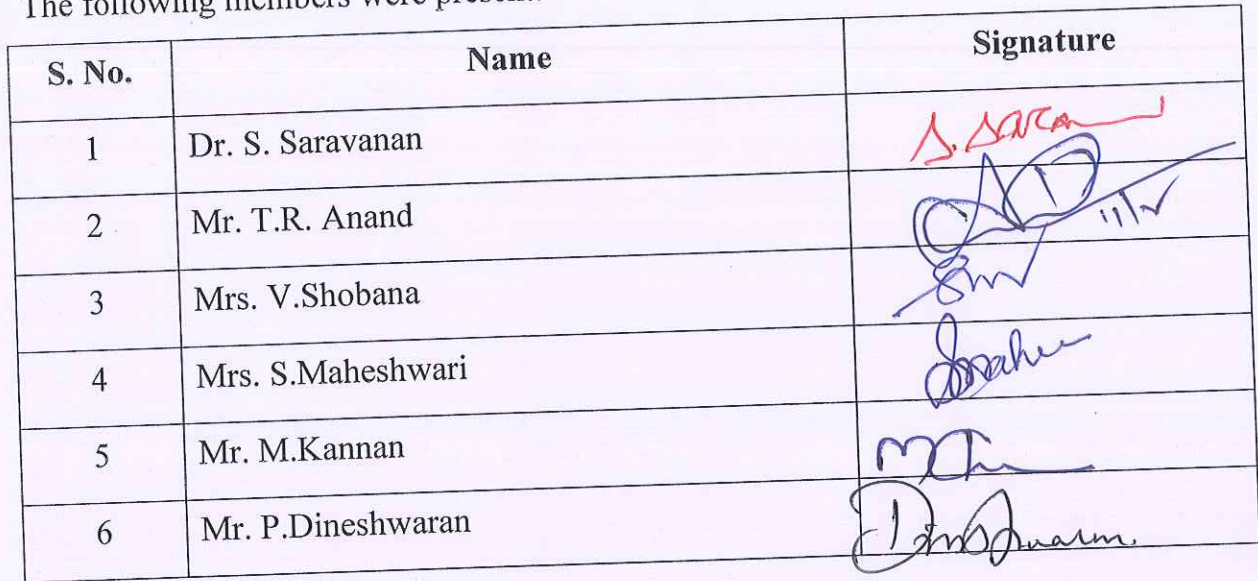 The following members were present
S. No. Name Signature
1 Dr. S. Saravanan
2 Mr. T.R. Anand 11/2
3 Mrs. V.Shobana
4 Mrs. S.Maheshwari
5 Mr. M.Kannan
6 Mr. P.Dineshwaran